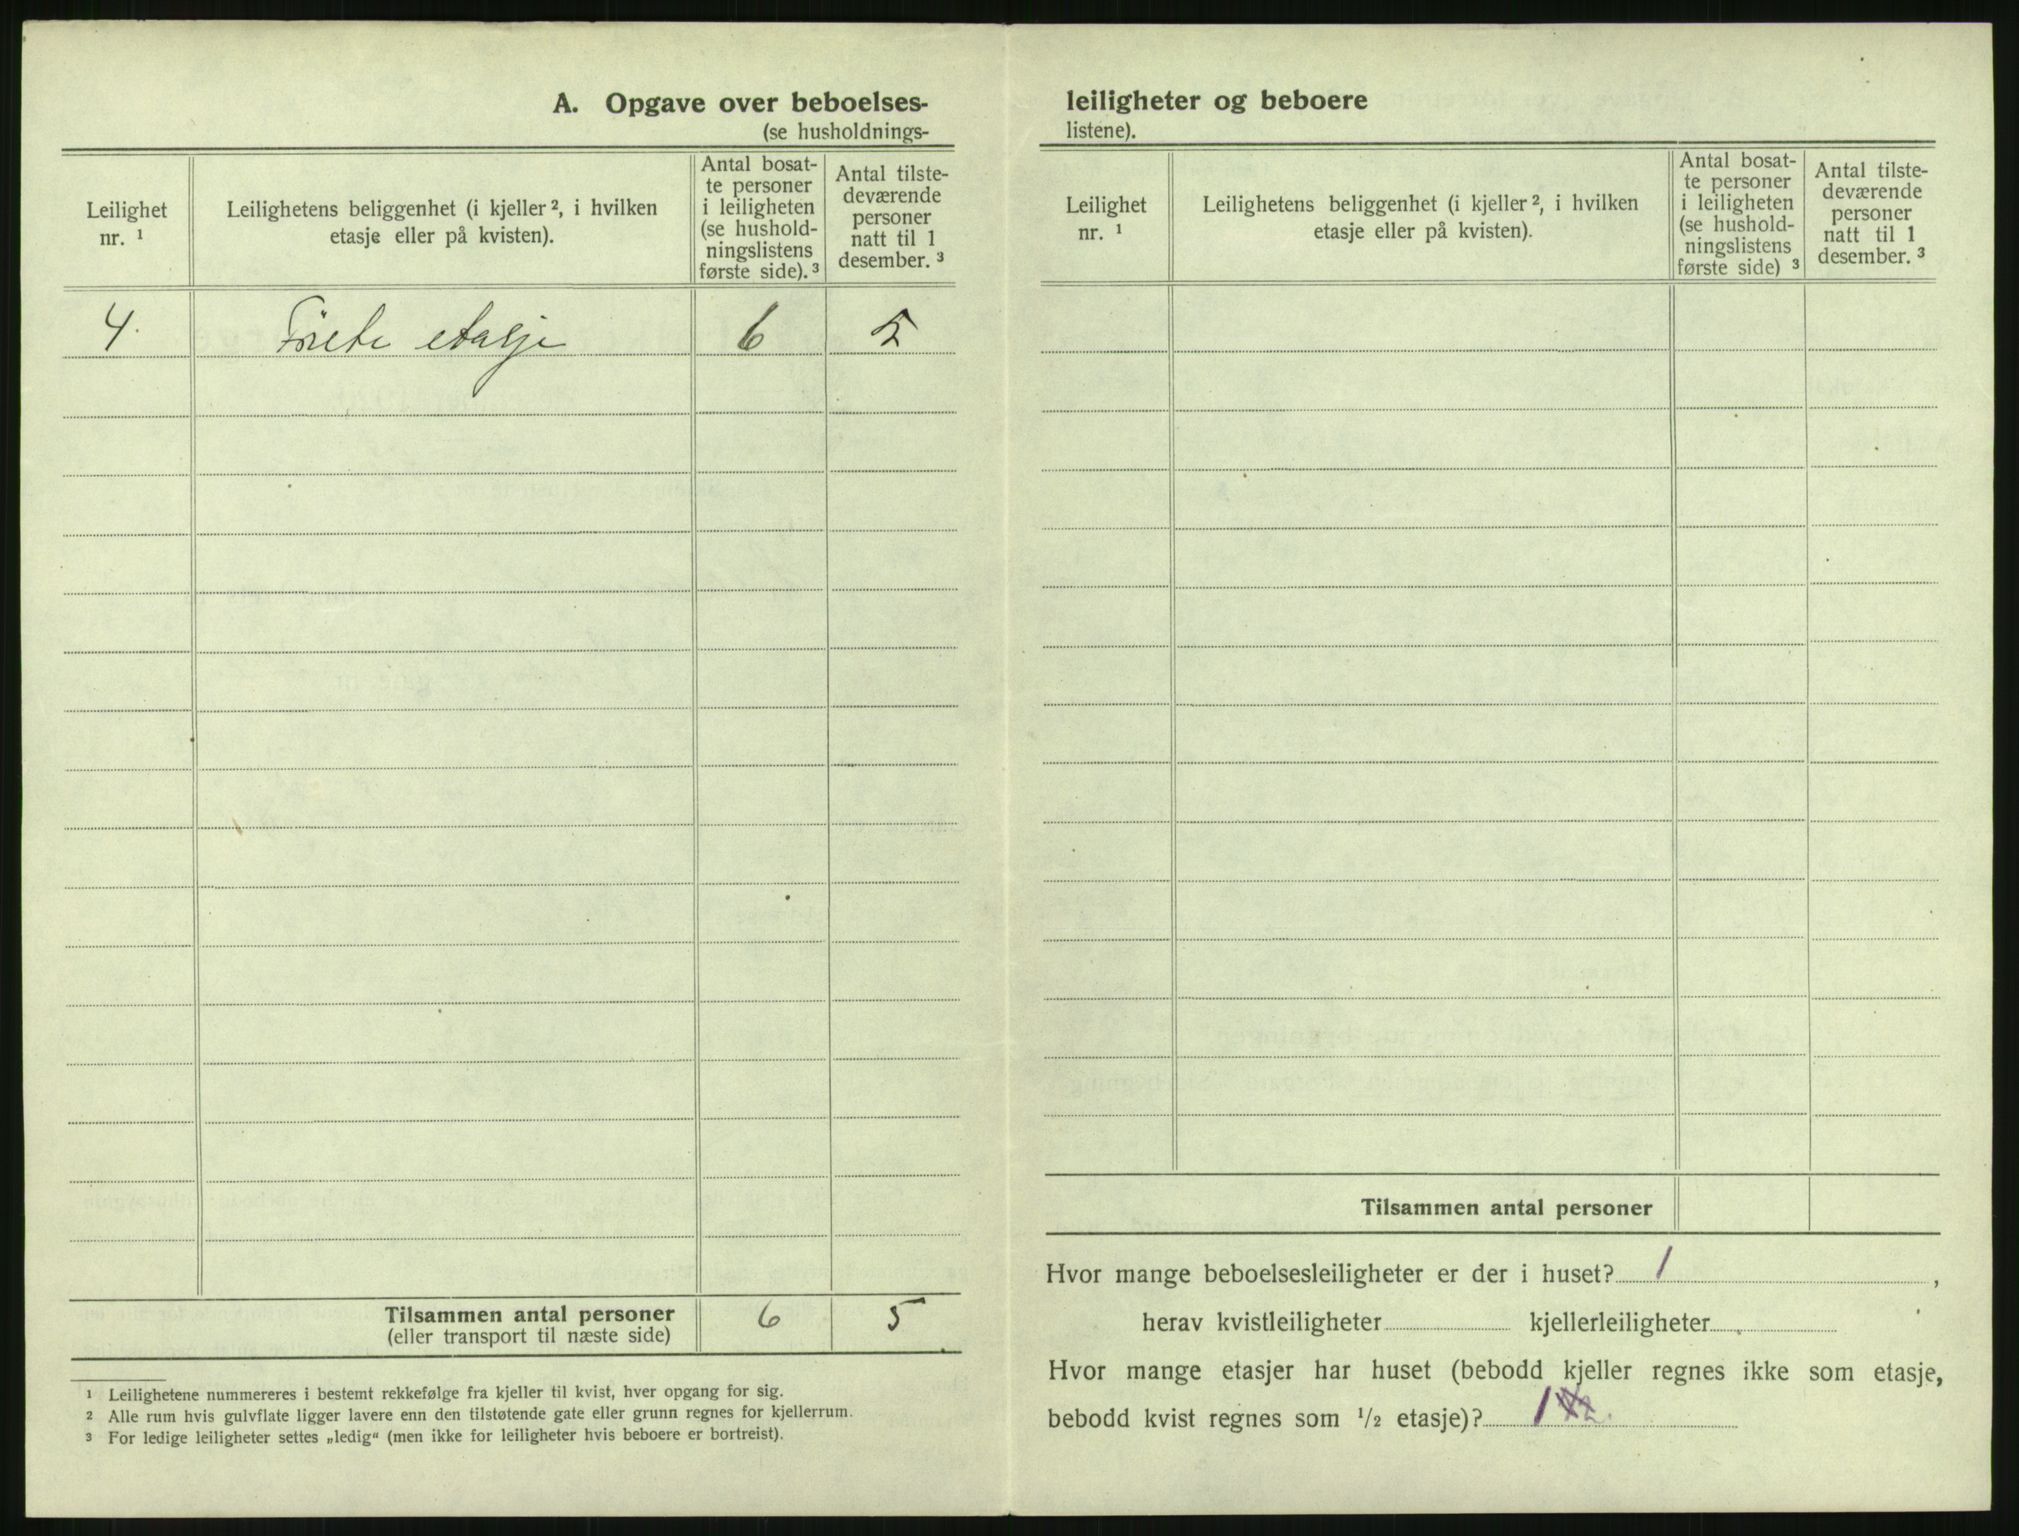 A. Opgave over beboelses-
(se husholdnings-
Leilighet
nr. ¹
Leilighetens beliggenhet (i kjeller ², i hvilken
etasje eller på kvisten).
Antal bosat-
te personer
i leiligheten
(se hushold-
ningslistens
første side). ³
Antal tilste-
deværende
personer
natt til 1
desember. ³
4. Förste etasje 6 5
Tilsammen antal personer 6 5
(eller transport til næste side)
¹ Leilighetene nummereres i bestemt rekkefølge fra kjeller til kvist, hver opgang for sig.
² Alle rum hvis gulvflate ligger lavere enn den tilstøtende gate eller grunn regnes for kjellerrum.
³ For ledige leiligheter settes „ledig“ (men ikke for leiligheter hvis beboere er bortreist).
leiligheter og beboere
listene).
Leilighet
nr. ¹
Leilighetens beliggenhet (i kjeller ², i hvilken
etasje eller på kvisten).
Antal bosat-
te personer
i leiligheten
(se hushold-
ningslistens
første side) ³
Antal tilste-
deværende
personer
natt til 1
desember. ³
Tilsammen antal personer
Hvor mange beboelsesleiligheter er der i huset? 1 ,
herav kvistleiligheter kjellerleiligheter
Hvor mange etasjer har huset (bebodd kjeller regnes ikke som etasje,
bebodd kvist regnes som ¹/₂ etasje)? 1